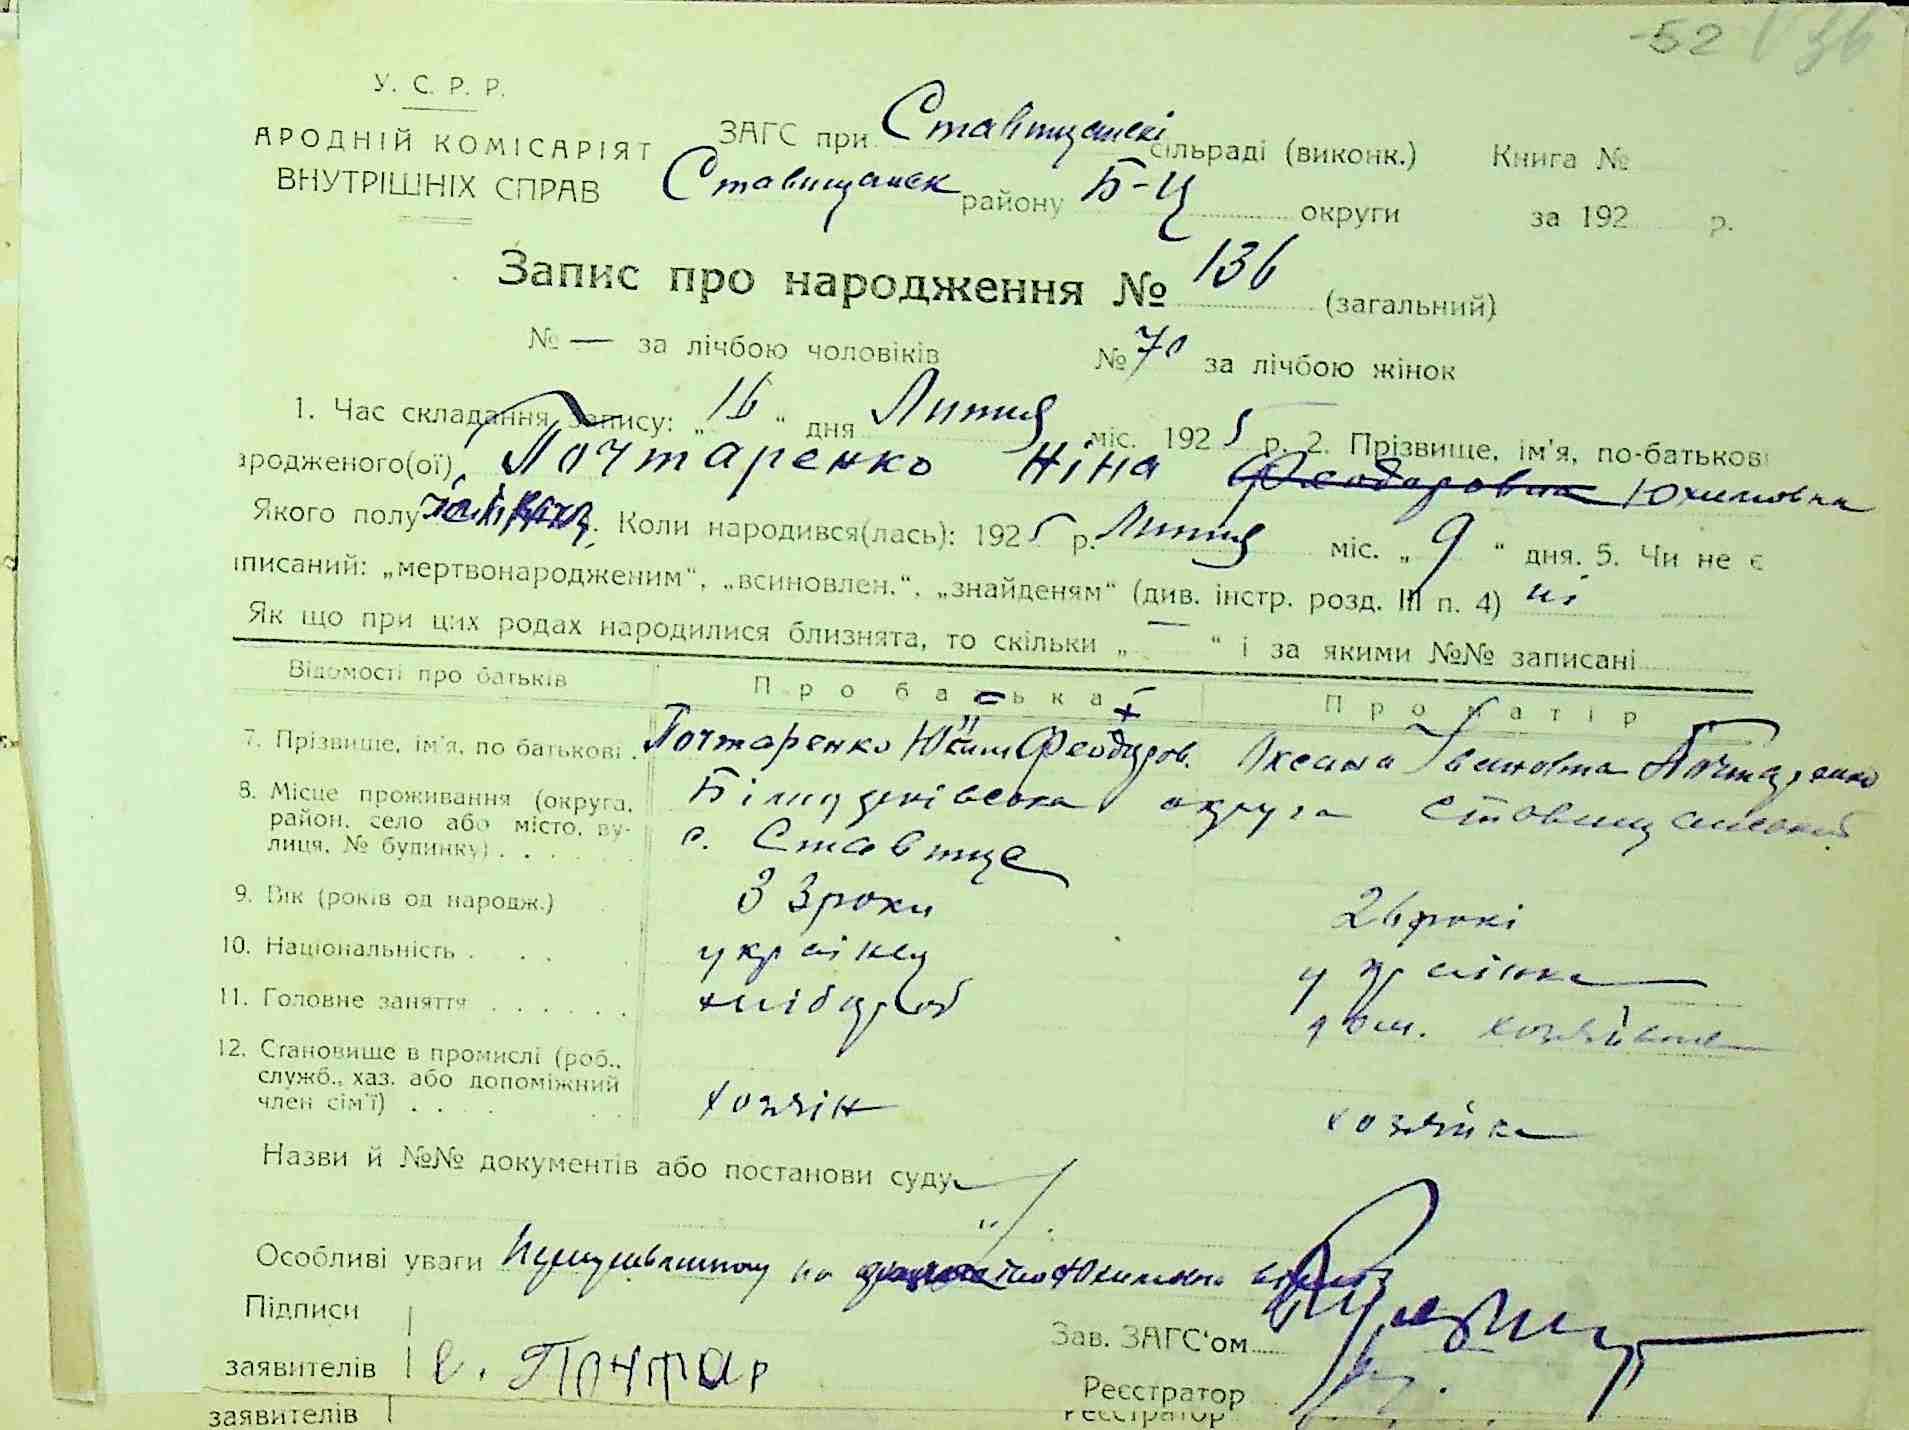 52 136
У. С. Р. Р.
АРОДНІЙ КОМІСАРІЯТ
ВНУТРІШНІХ СПРАВ
ЗАГС при Ставищанскі сільраді (виконк.) Книга №
Ставищанск району Б-Ц округи за 192 р.
Запис про народження № 136 (загальний)
№ — за лічбою чоловіків № 70 за лічбою жінок
1. Час складання запису: „16“ дня Липня міс. 1925 р. 2. Прізвище, ім'я, по-батькові
ародженого(ої) Почтаренко Ніна Феодоровна Юхимовна
Якого полу Коли народився(лась): 1925 р. Липня міс. „9“ дня. 5. Чи не є
писаний: „мертвонародженим“, „всиновлен.“, „знайденям“ (див. інстр. розд. III п. 4) ні
Як що при цих родах народилися близнята, то скільки „—“ і за якими №№ записані
Відомості про батьків Про батька Про матір
7. Прізвише, ім'я, по батькові Почтаренко Юхим Феодоров. Оксана Івановна Почтаренко
8. Місце проживання (округа, район, село або місто, вулиця, № будинку) Білоцерківська округа Ставищанський
с. Ставище
9. Вік (років од народж.) 33 роки 26 рокі
10. Національність українец українка
11. Головне заняття хлібороб дом. хозяйка
12. Становище в промислі (роб., служб., хаз. або допоміжний член сім'ї) хозяїн хозяйка
Назви й №№ документів або постанови суду —
Особливі уваги по Юхимовна
Підписи
заявителів е. Почтар
Зав. ЗАГС'ом
Реєстратор
заявителів
Реєстратор